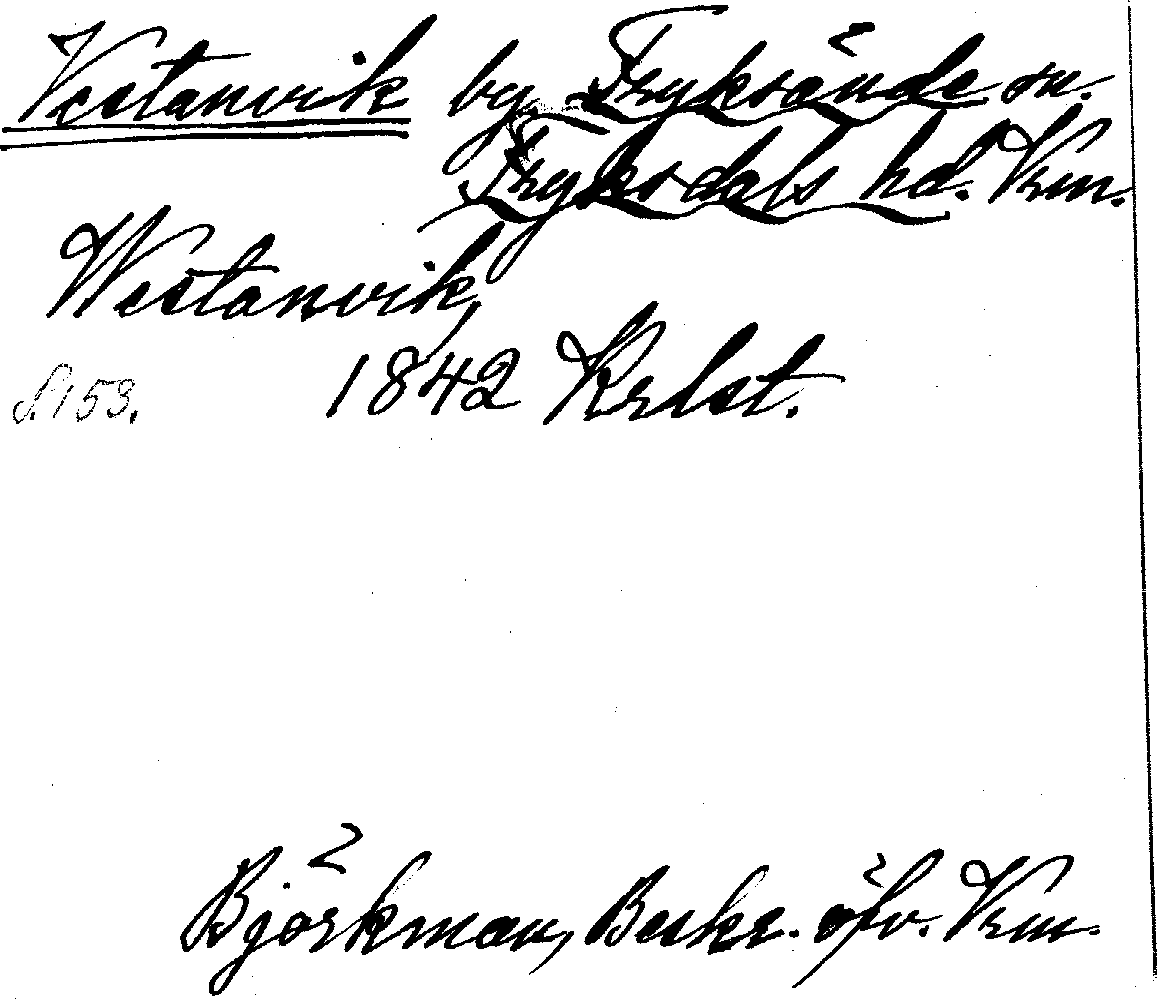 Vestanvik by Fryksände sn.
Fryksdals hd. Vrm.
Westanvik,
S. 153. 1842 Krlst.
Björkman, Beskr. öfv. Vrm.